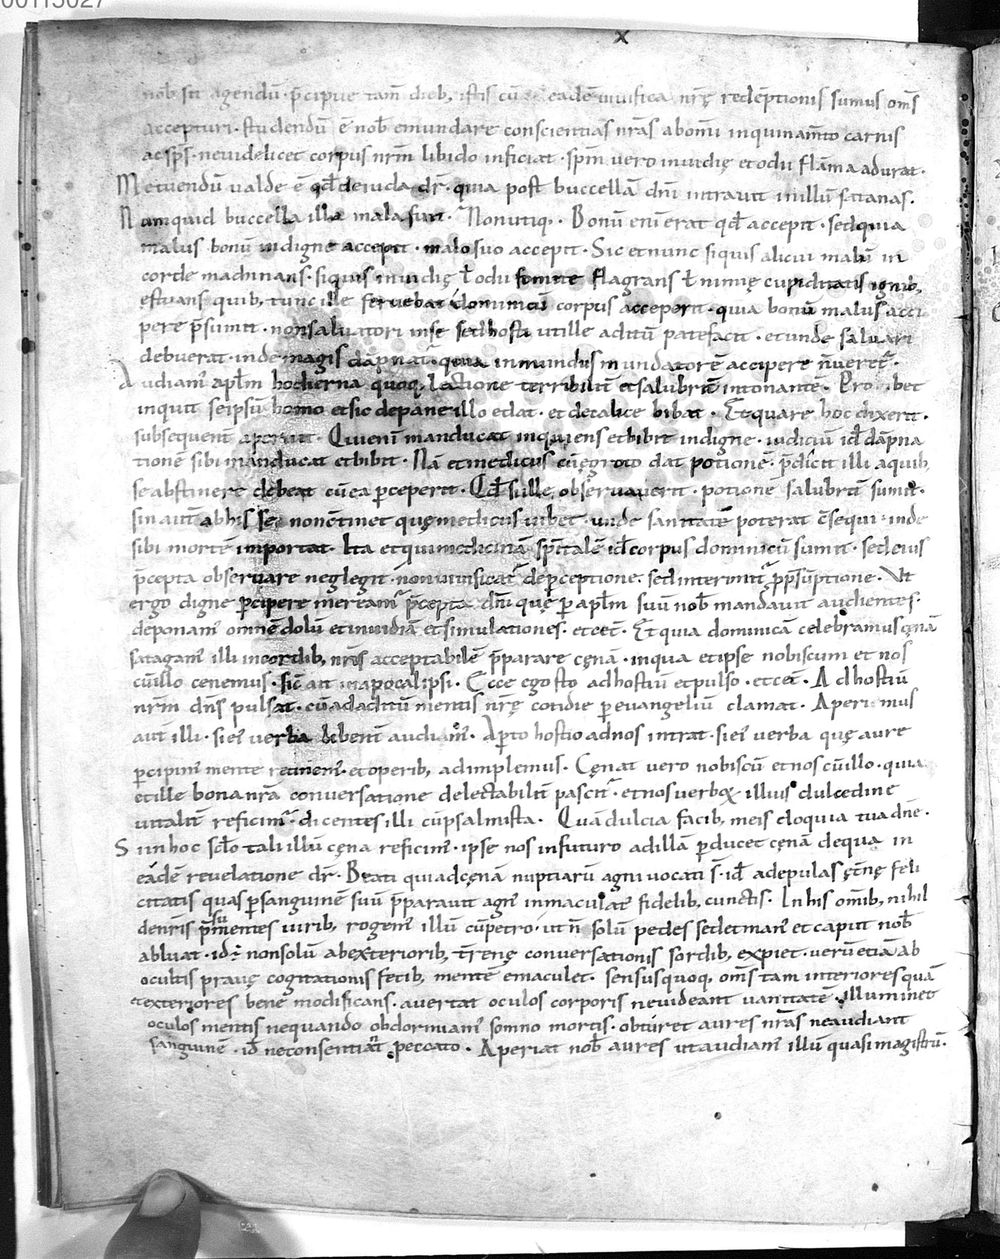 00113027
x
nob̄ sit agendū· p̄cipue tam̄ dieb; istis cū eadē viuifica nr̄ę redēptionis sumus om̄s
accepturi· studendū ē nob̄ emundare conscientias nr̄as ab om̄i inquinam̄to carnis
ac sp̄s· ne uidelicet corpus nr̄m libido inficiat· sp̄m vero inuidię et odii flam̄a adurat·
Metuendū ualde ē qđ de iuda dr̄· quia post buccellā dn̄i intrauit in illū satanas·
Numquid buccella illa mala fuit· Non utiq;· Bonū eni erat qđ accepit· sed quia
malus bonū indigne accepit· malo suo accepit· Sic et nunc siquis alicui malū in
corde machinans· siquis inuidię ł odii fomite flagrans ł nimię cupiditatis ignib;
estuans quib; tunc ille feruebat dominicū corpus acceperit· quia bonū malus acci
pere p̄sumit· non saluatori in se sed hosti ut ille aditū patefacit· et unde saluari
debuerat· inde magis dāpnatur· quia inmundus mundatorē accipere n̄ ueretur·
Audiam' apl̄m hodierna quoq; lectione terribilit̄ et salubrit̄ intonantē· Probet
inquit seipsū homo et sic de pane illo edat· et de calice bibat· Et quare hoc dixerit·
subsequent̄ aperuit· Qui eni manducat inquiens et bibit indigne· iudiciū id dāpna
tionē sibi manducat et bibit· Nā et medicus cū ęgroto dat potionē· p̄dicit illi a quib;
se abstinere debeat cū ea p̄ceperit· Qđ si ille obseruauerit· potione salubrit̄ sumit·
sin autē ab his se non c̄tinet quę medicus iubet· unde sanitatē poterat c̄sequi· inde
sibi mortē importat· Ita et qui medicinā sp̄italē id corpus dominicū sumit· sed eius
p̄cepta obseruare neglegit· non uiuificatur de p̄ceptione· sed interimitur p̄ p̄sūptione· Ut
ergo digne p̄cipere mereamur p̄cepta dn̄i quę p̄ apl̄m suū nob̄ mandauit audientes·
deponam' omnē dolū et inuidiā et simulationes· et cet̄· Et quia dominicā celebramus cęnā
satagam' illi in cordib; nr̄is acceptabilē p̄parare cęnā· in qua et ipse nobiscum et nos
cū illo cenemus· sic̄ ait in apocalipsi· Ecce ego sto ad hostiū et pulso· et cet̄· Ad hostiū
nr̄m dn̄s pulsat· cū ad aditū mentis nr̄ę cotidie p̄ euangeliū clamat· Aperimus
aut̄ illi· si ei' verba libent̄ audiam'· Apto hostio ad nos intrat· si ei' verba quę aure
p̄cipim' mente retinem'· et operib; adimplemus· Cęnat vero nobiscū et nos cū illo· quia
et ille bona nr̄a conuersatione delectabilit̄ pascitur· et nos verboꝝ illius dulcedine
uitalit̄ reficimur· dicentes illi cū psalmista· Quā dulcia faucib; meis eloquia tua dn̄e·
Si in hoc sc̄lo tali illū cęna reficim'· ipse nos in futuro ad illā p̄ducet cęnā de qua in
eadē reuelatione dr̄· Beati qui ad cęnā nuptiarū agni vocati s̄· id ad epulas ęt̄nę feli
citatis quas p̄ sanguinē suū p̄parauit agn' inmaculatus fidelib; cunctis· In his om̄ib; nihil
de nr̄is p̄sumentes uirib; rogem' illū cū petro· ut n̄ solū pedes sed et man' et caput nob̄
abluat· id· non solū ab exteriorib; t̄renę conuersationis sordib; expiet· verū etiā ab
ocultis prauę cogitationis fecib; mentē emaculet· sensus quoq; om̄s tam interiores quā
et exteriores bene modificans· auertat oculos corporis ne uideant uanitatē· illuminet
oculos mentis nequando obdormiam' somno mortis· obturet aures nr̄as ne audiant
sanguinē· id ne consentiat peccato· Aperiat nob̄ aures ut audiam' illū quasi magistrū·